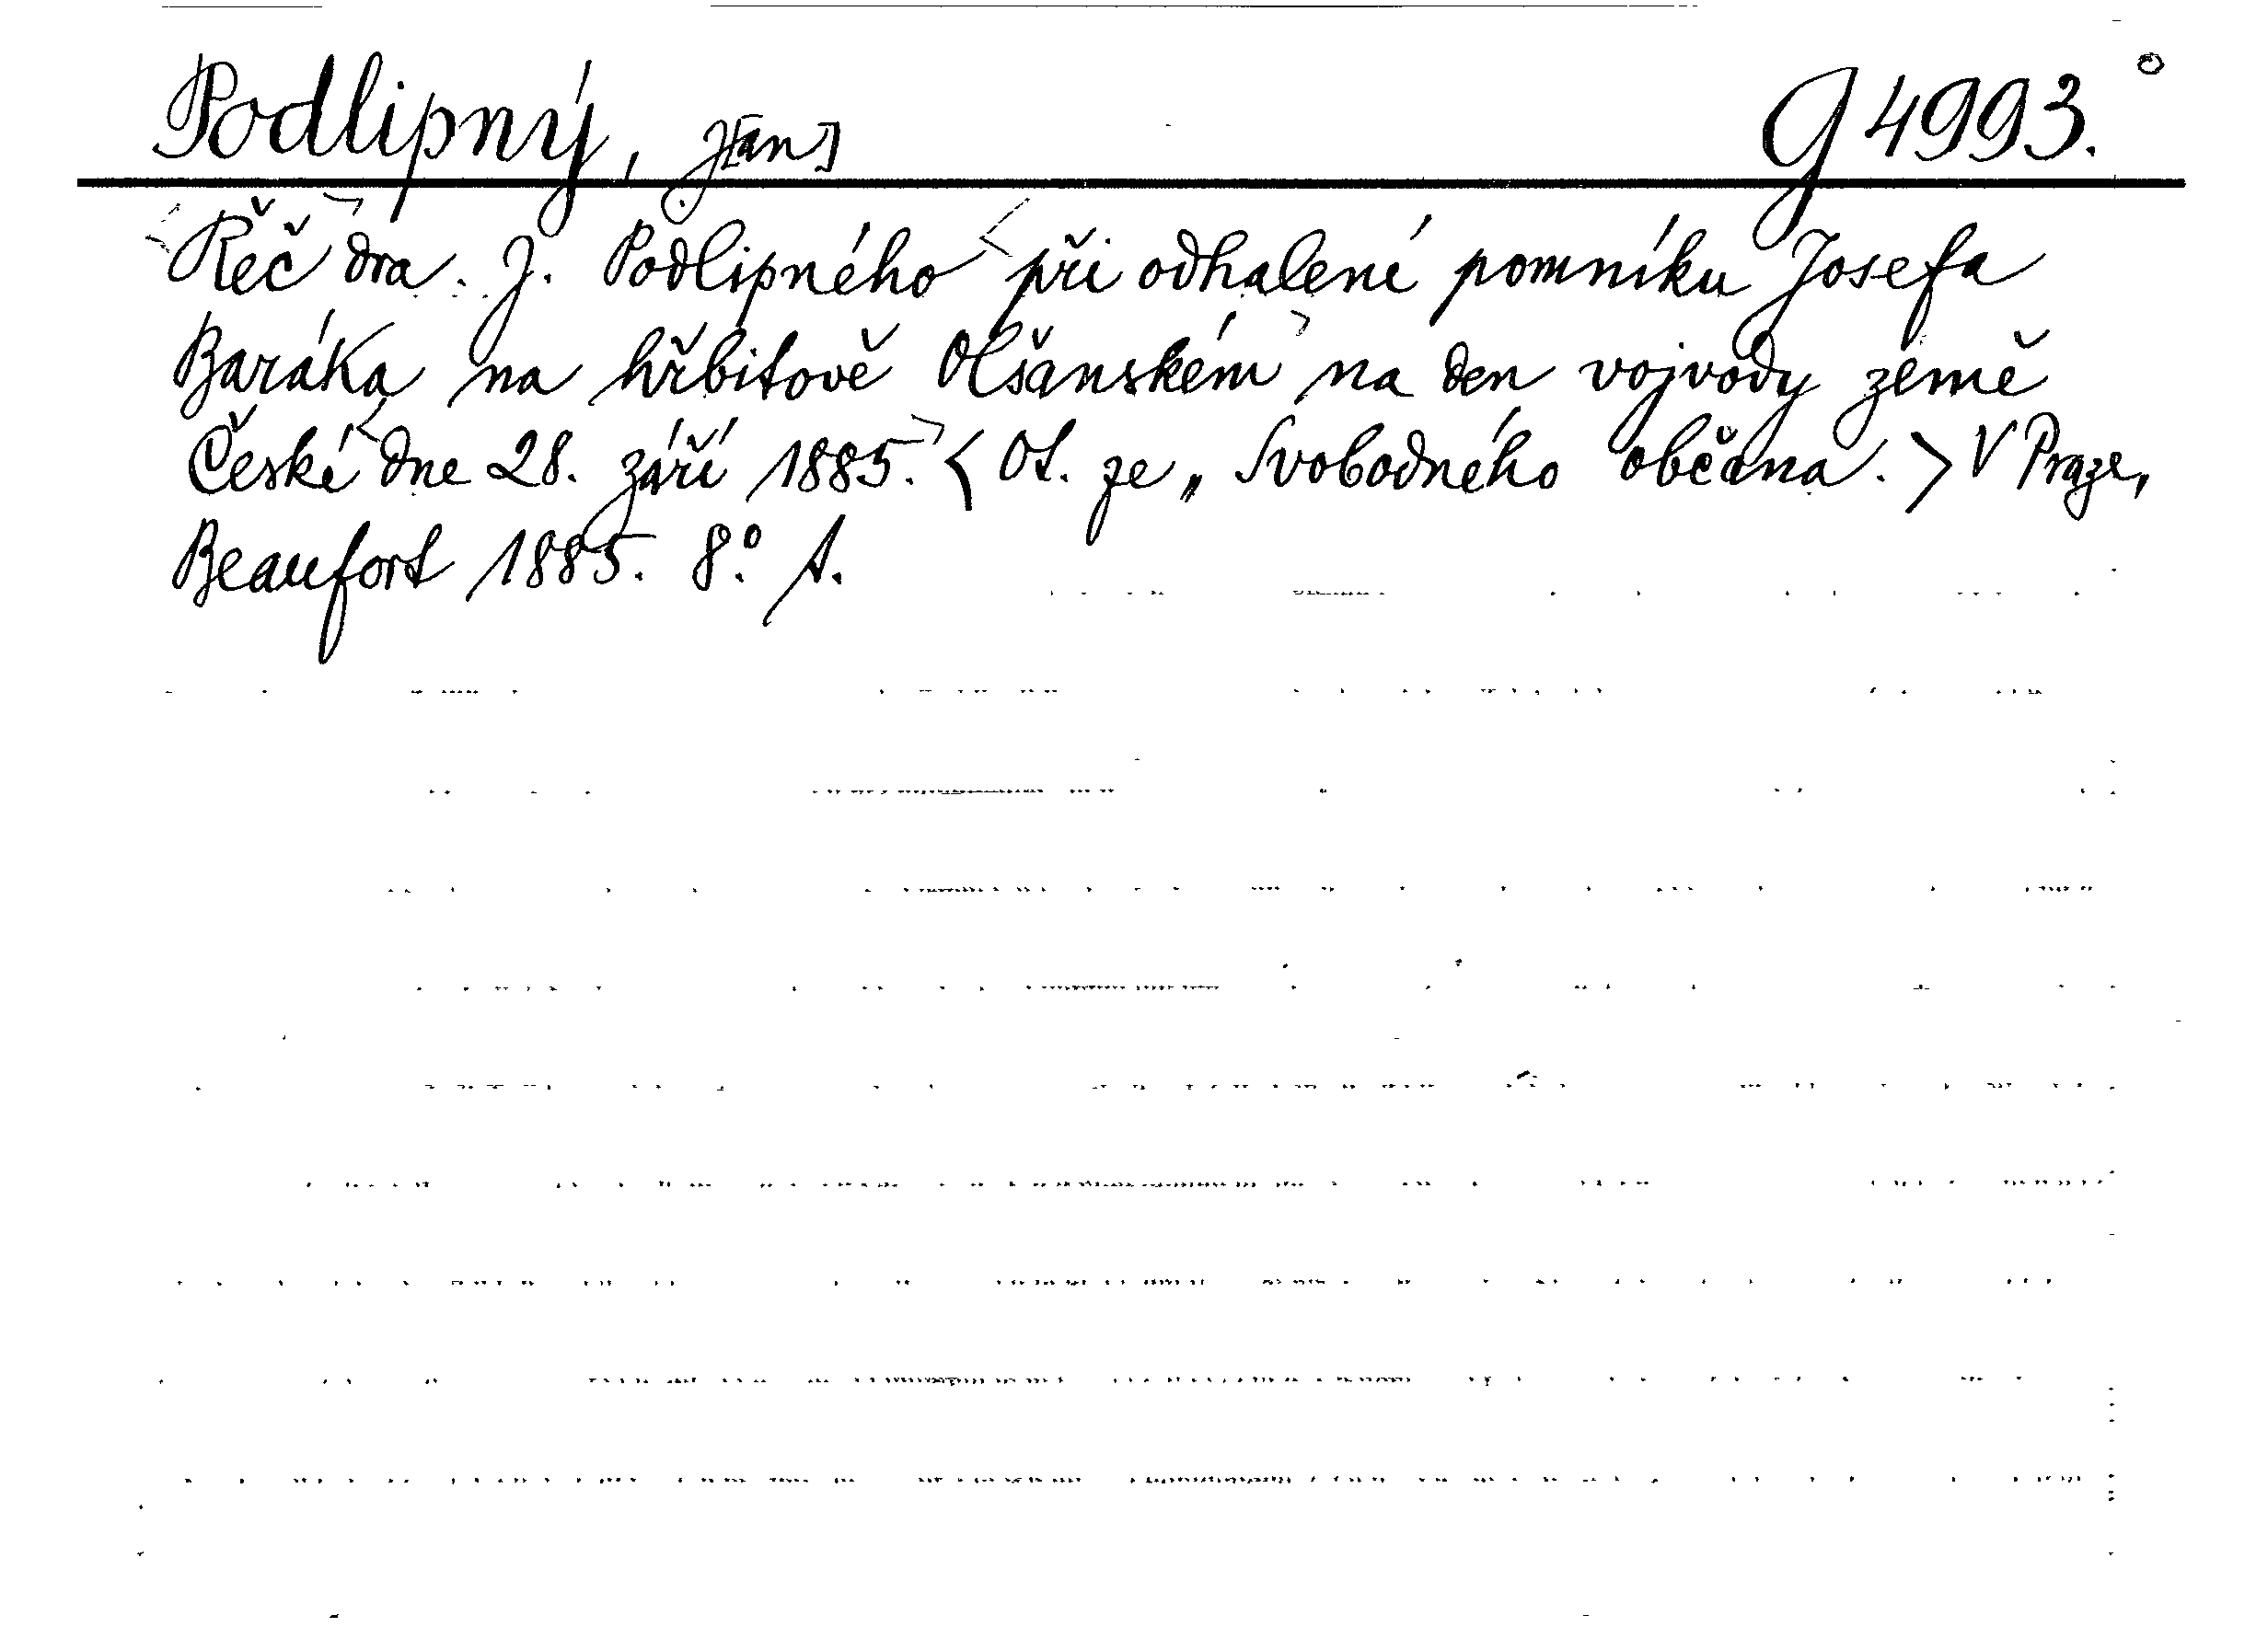 Podlipný, J[an] g 4993.
Řeč dra. J. Podlipného při odhalení pomníku Josefa
Baráka na hřbitově Olšanském na den vojvody země
České dne 28. září 1885. < Ot. ze „Svobodného občana. > V Praze,
Beaufort 1885. 8.°